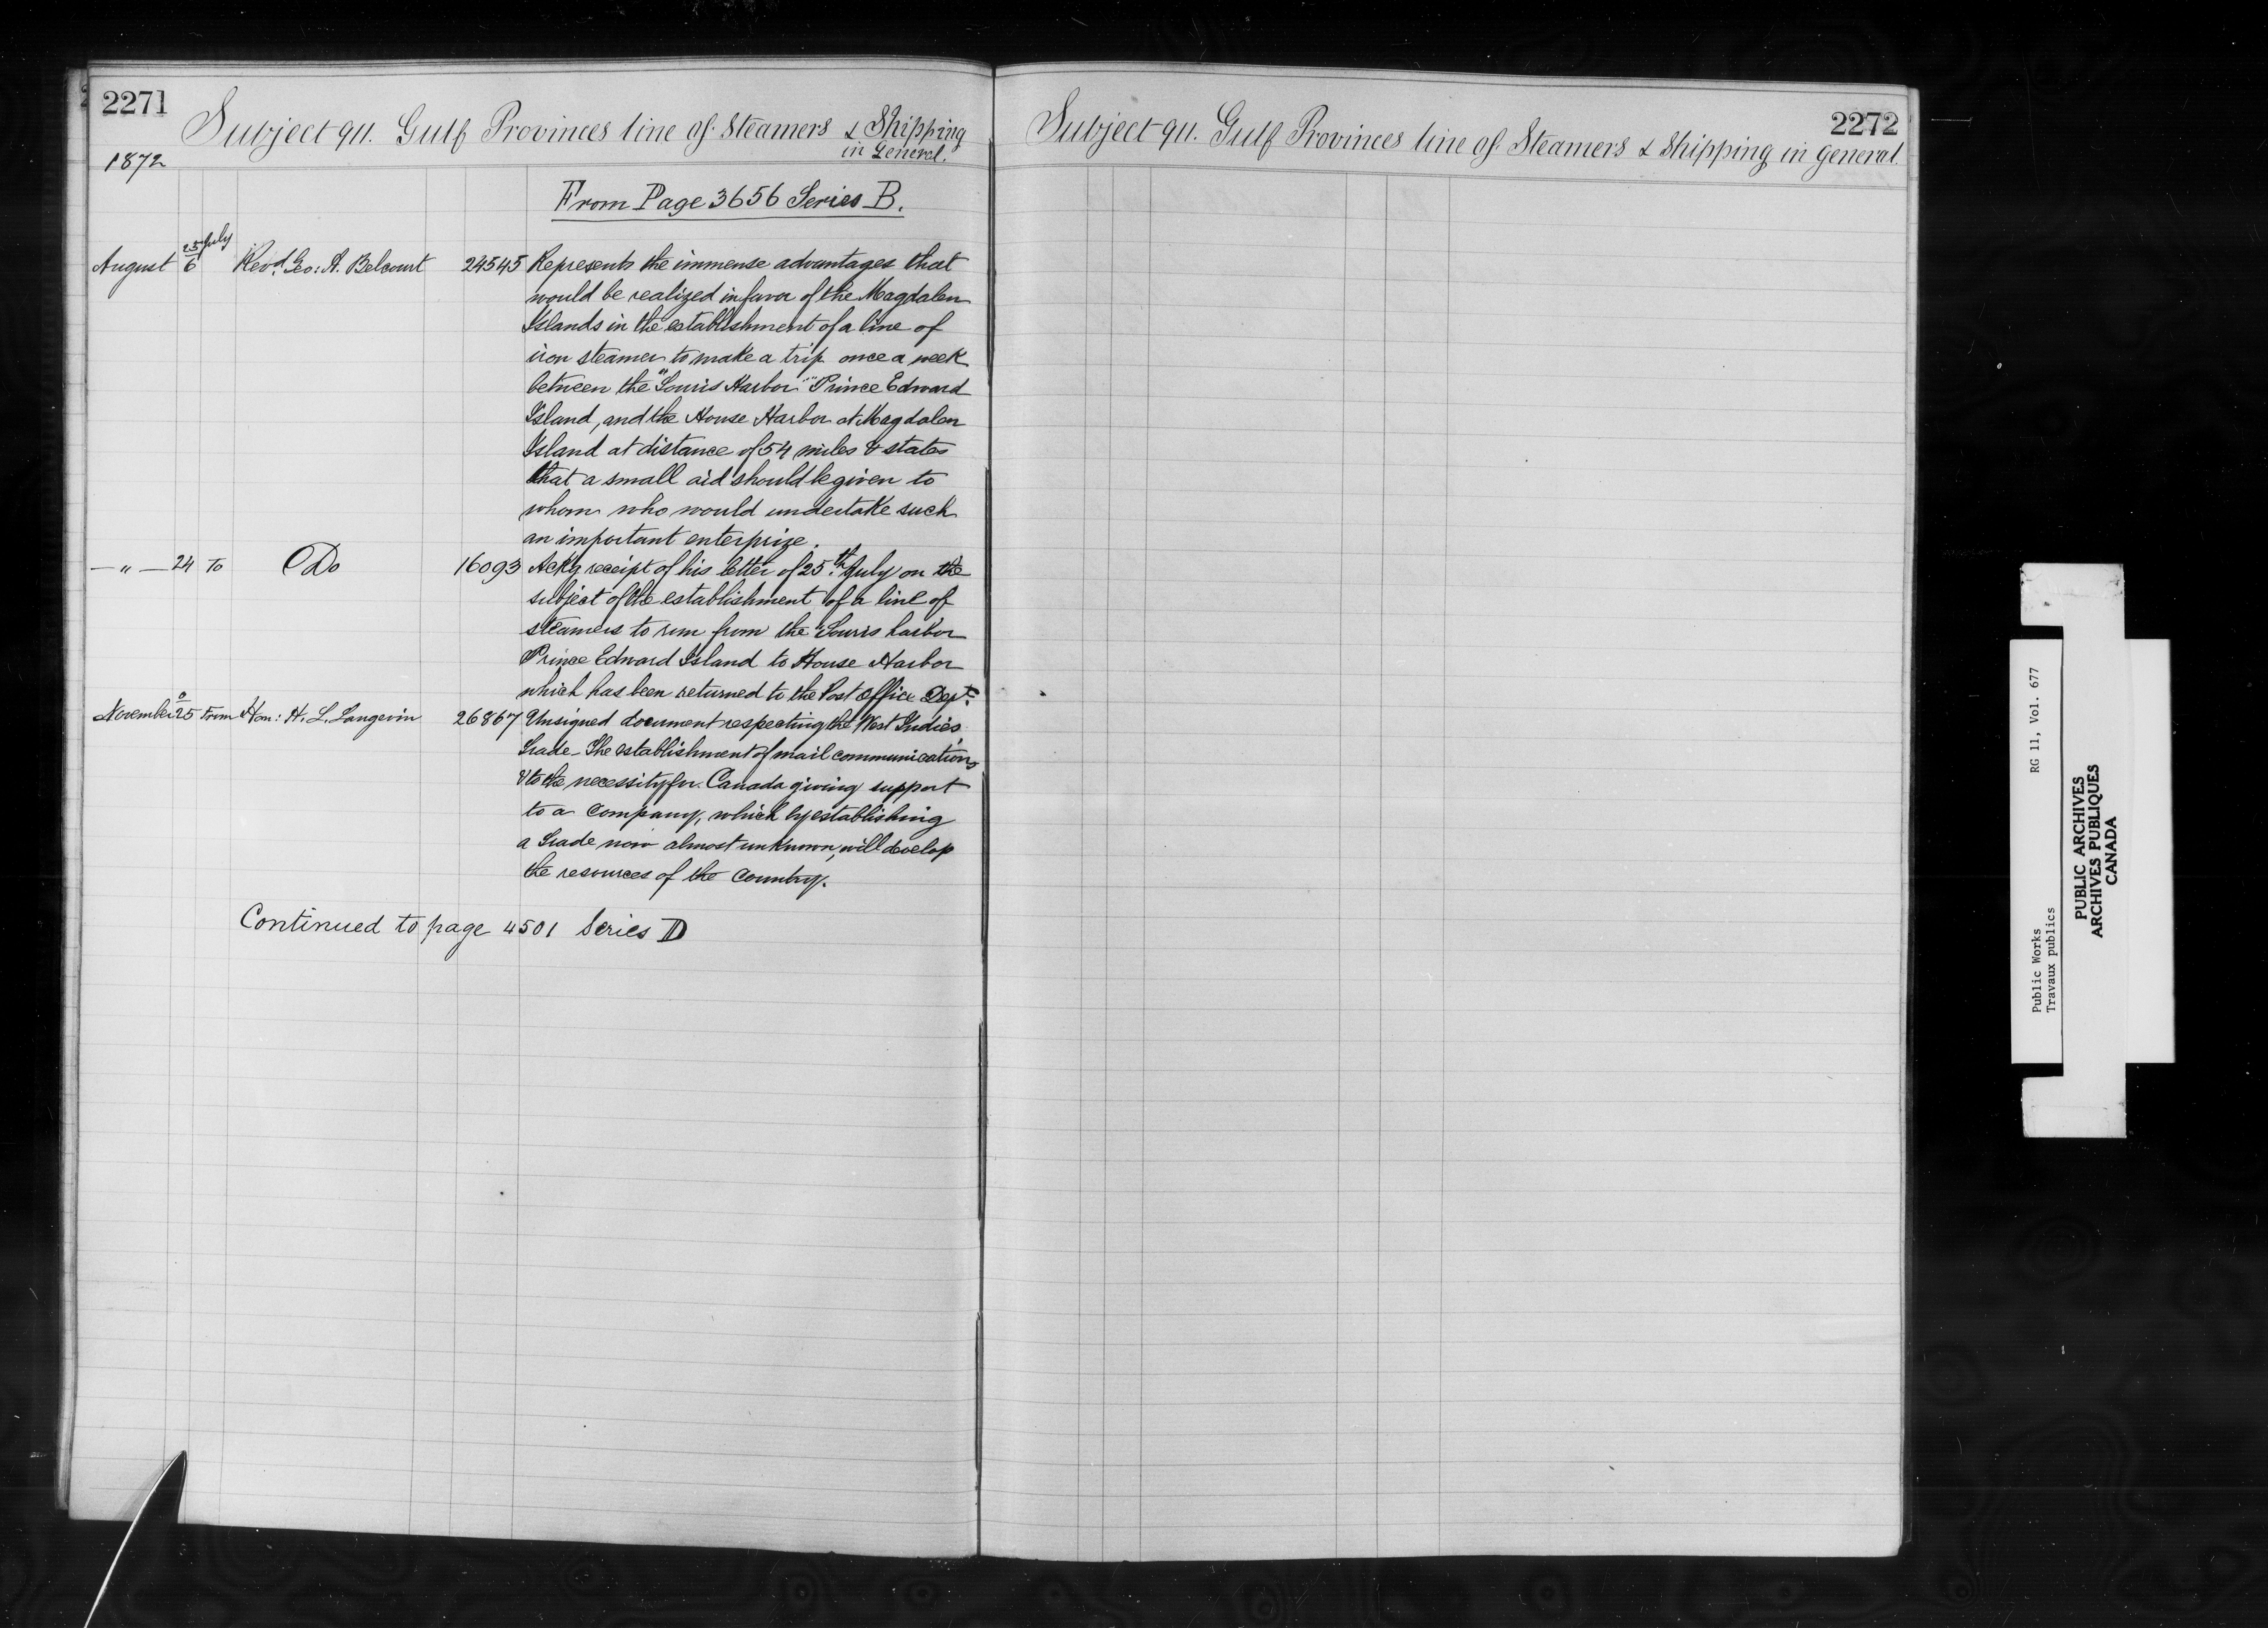 2271
Subject 911. Gulf Provinces line of Steamers & Shipping
in General.
1872
From Page 3656 Series B.
25 July
August 6 Revd. Geo: A. Belcourt 24545 Represents the immense advantages that
would be realized in favor of the Magdalen
Islands in the establishment of a line of
iron steamer to make a trip once a week
between the "Souris Harbor" "Prince Edward
Island, and the House Harbor at Magdalen
Island at distance of 54 miles & states
that a small aid should be given to
whom who would undertake such
an important enterprize.
— " — 24 To Do 16093 Ackg receipt of his letter of 25th July on the
subject of the establishment of a line of
steamers to run from the Souris harbor
Prince Edward Island to House Harbor
which has been returned to the Post Office Dept.
0
November 25 From Hon: H. L. Langevin 26867 Unsigned document respecting the West Indies
Trade - The establishment of mail communications
& to the necessity for Canada giving support
to a Company, which by establishing
a Trade now almost unknown, will develop
the resources of the Country.
Continued to page 4501 Series D
2272
Subject 911. Gulf Provinces line of Steamers & Shipping in General.
Public Works RG 11, Vol. 677
Travaux publics
PUBLIC ARCHIVES
ARCHIVES PUBLIQUES
CANADA